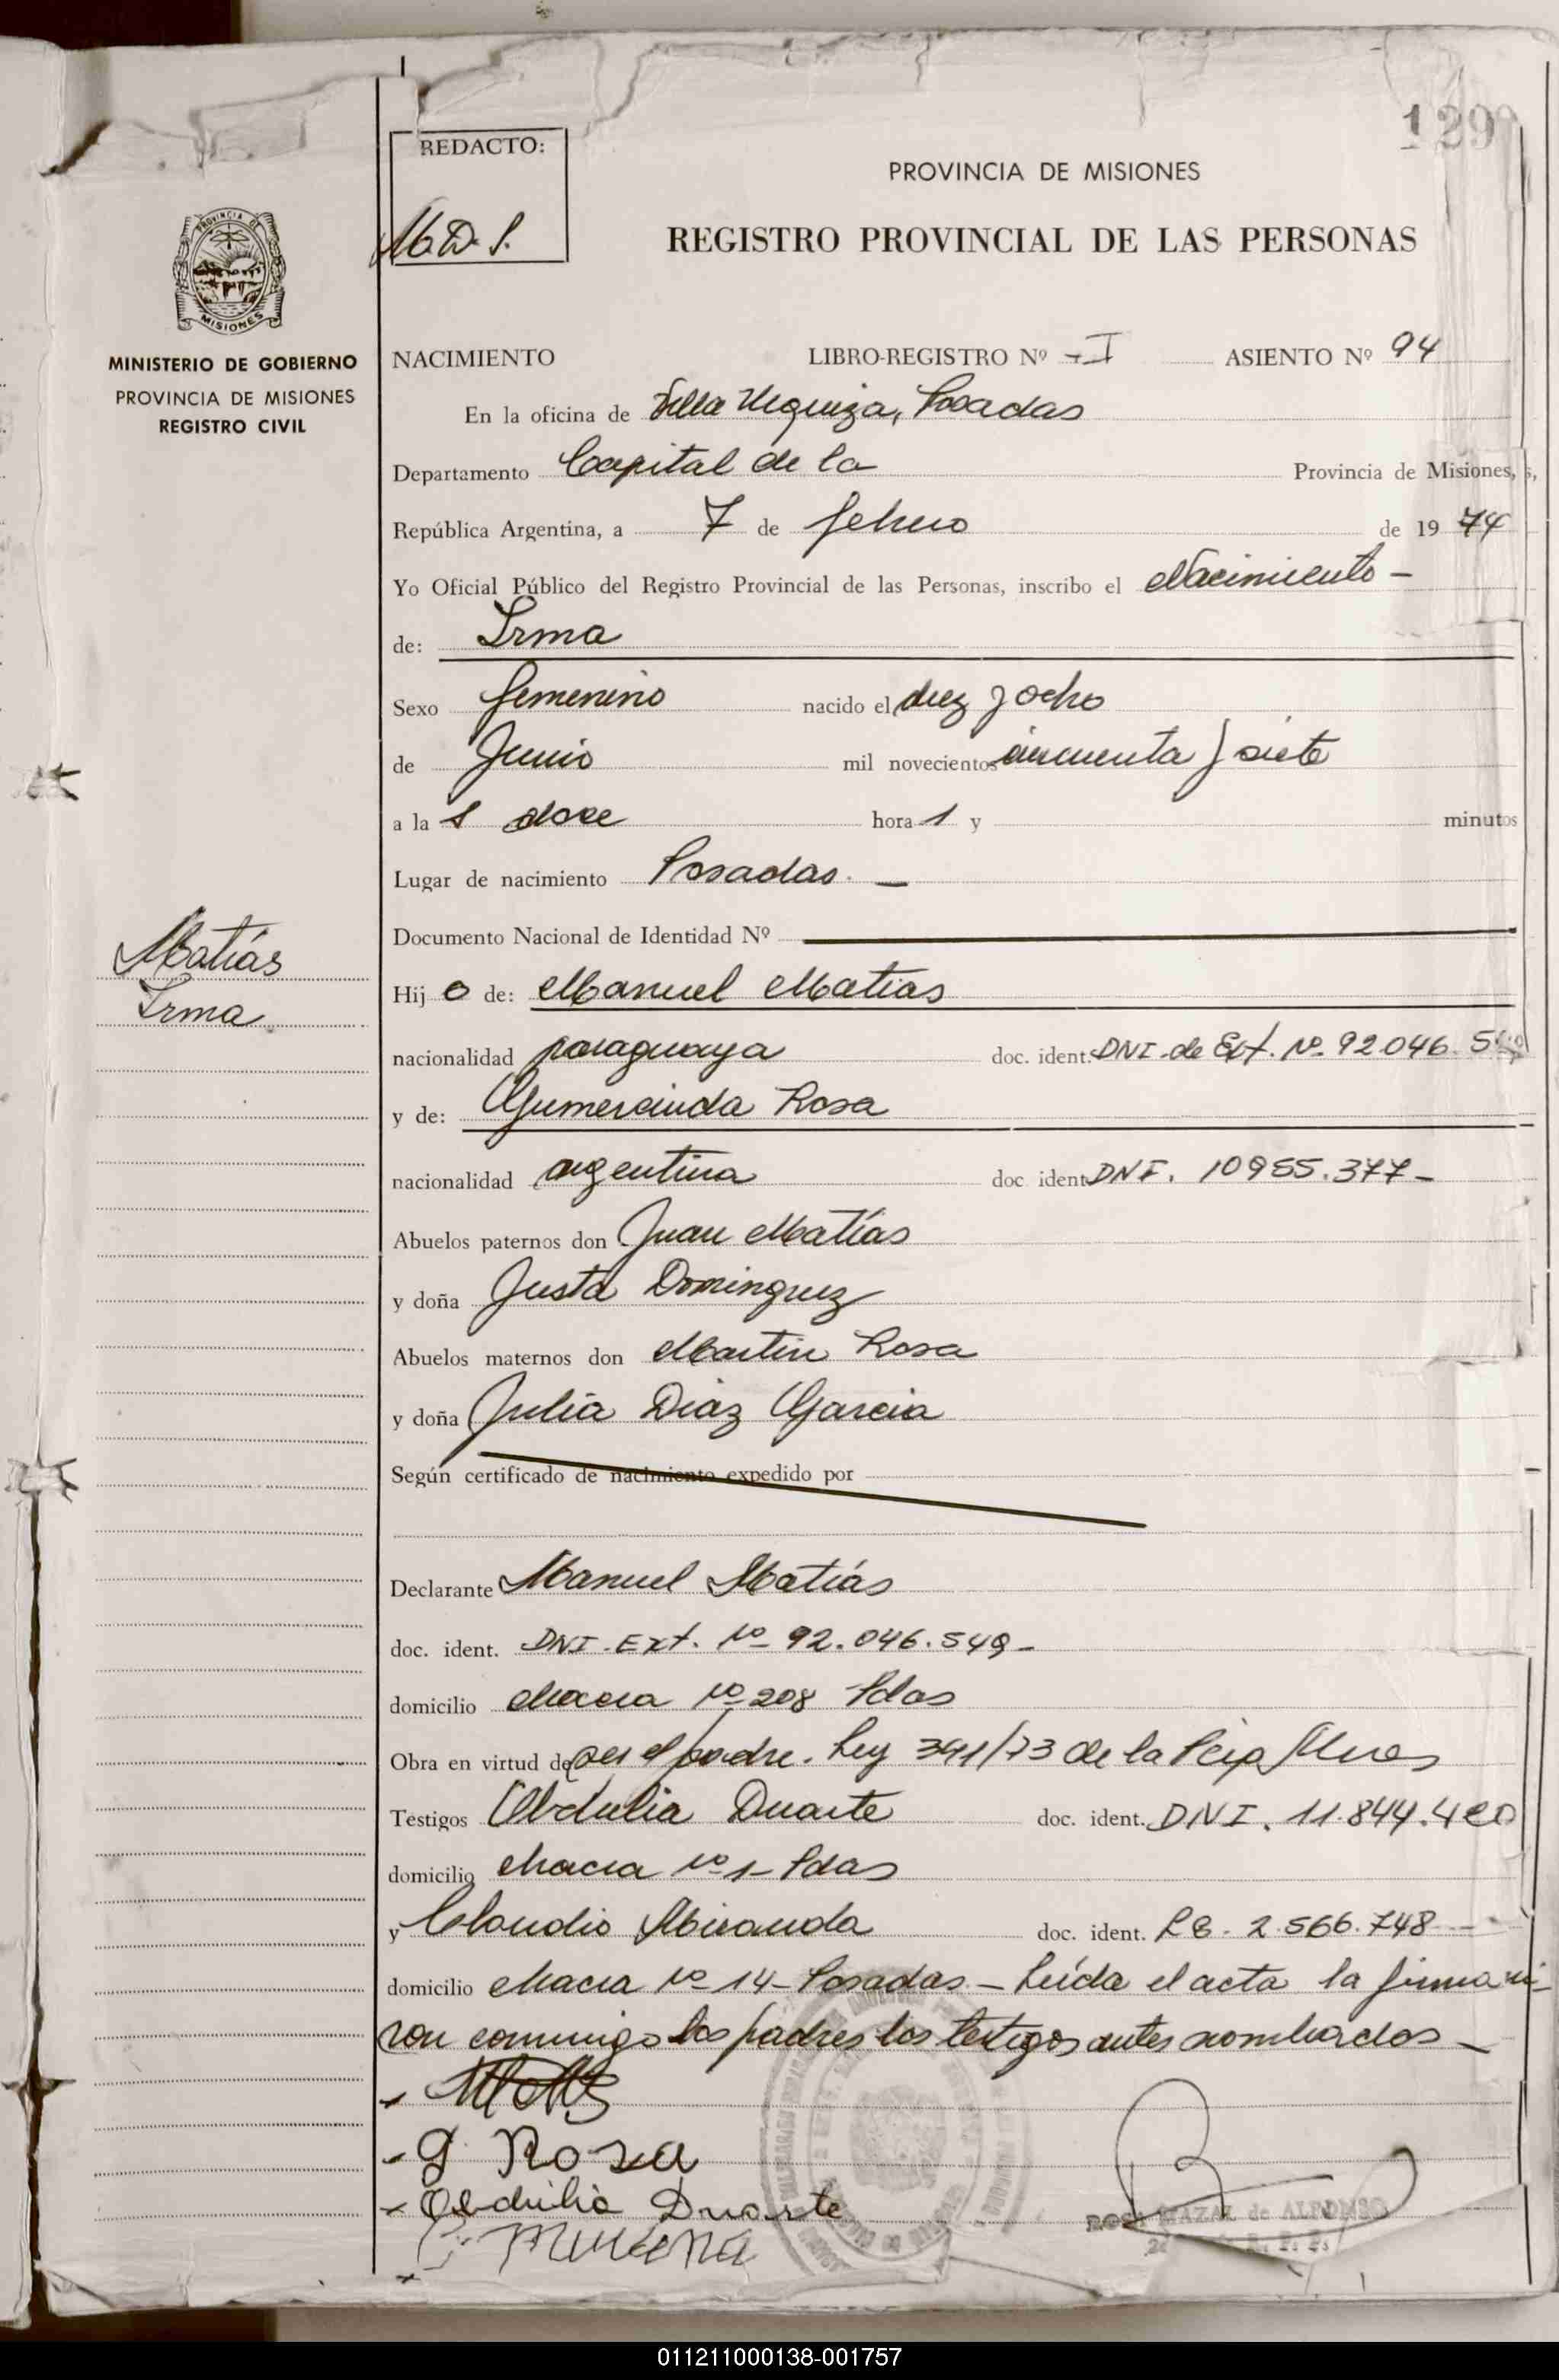 129
REDACTO:
M.D.S.
PROVINCIA DE MISIONES
REGISTRO PROVINCIAL DE LAS PERSONAS
PROVINCIA DE
MISIONES
MINISTERIO DE GOBIERNO
PROVINCIA DE MISIONES
REGISTRO CIVIL
NACIMIENTO LIBRO-REGISTRO Nº -I ASIENTO Nº 94
En la oficina de Villa Urquiza, Posadas
Departamento Capital de la Provincia de Misiones,
República Argentina, a 7 de febrero de 1974
Yo Oficial Público del Registro Provincial de las Personas, inscribo el Nacimiento -
de: Irma
Sexo femenino nacido el diez y ocho
de Junio mil novecientos cincuenta y siete
a la s doce hora s y minutos
Lugar de nacimiento Posadas. -
Documento Nacional de Identidad Nº
Matías
Irma
Hij o de: Manuel Matias
nacionalidad paraguaya doc. ident. DNI. de Ext. Nº 92.046.5
y de: Gumercinda Rosa
nacionalidad argentina doc ident DNI. 10955.377-
Abuelos paternos don Juan Matías
y doña Justa Dominguez
Abuelos maternos don Martin Rosa
y doña Julia Diaz Garcia
Según certificado de nacimiento expedido por
Declarante Manuel Matías
doc. ident. DNI. Ext. Nº 92.046.549-
domicilio chacra Nº 208 Pdas
Obra en virtud de ser el padre. Ley 391/73 de la Pcia Mnes
Testigos Obdulia Duarte doc. ident. DNI. 11.844.420
domicilio chacra Nº 1- Pdas
y Claudio Miranda doc. ident. LE. 2.566.748
domicilio chacra Nº 14- Posadas.- Leída el acta la firma
ron conmigo los padres los testigos antes nombrados-
G. Rosa
Obdulia Duarte
Miranda
MAZAL de ALFONSO
011211000138-001757